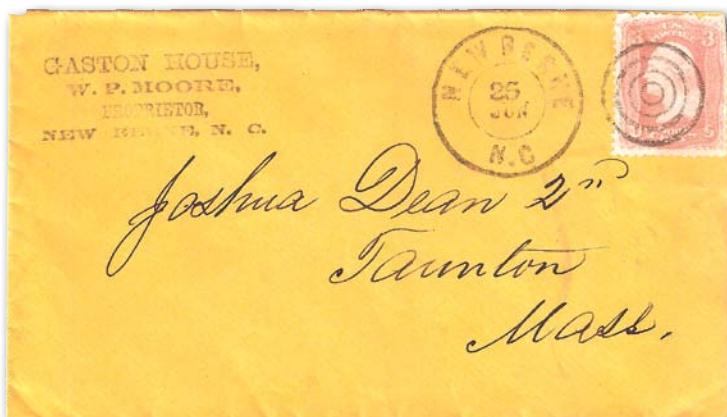 GASTON HOUSE,
W. P. MOORE,
PROPRIETOR,
NEW BERNE, N. C.
NEW BERNE
25
JUN
N.C
3 3
Joshua Dean 2ⁿᵈ
Taunton
Mass.